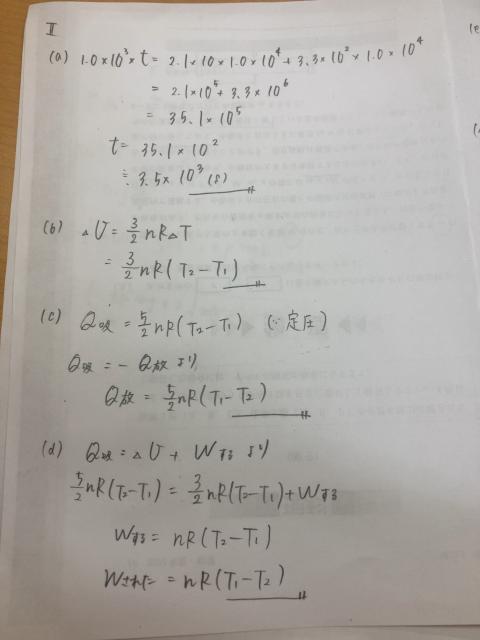 II
(a) 1.0×10³×t = 2.1×10×1.0×10⁴+3.3×10²×1.0×10⁴
= 2.1×10⁵+3.3×10⁶
= 35.1×10⁵
t = 35.1×10²
≒ 3.5×10³(s)
(b) △U = 3/2 nR△T
= 3/2 nR(T₂-T₁)
(c) Q吸 = 5/2 nR(T₂-T₁) (∵定圧)
Q吸 = -Q放 より
Q放 = 5/2 nR(T₁-T₂)
(d) Q吸 = △U + Wする より
5/2 nR(T₂-T₁) = 3/2 nR(T₂-T₁)+Wする
Wする = nR(T₂-T₁)
Wされた = nR(T₁-T₂)